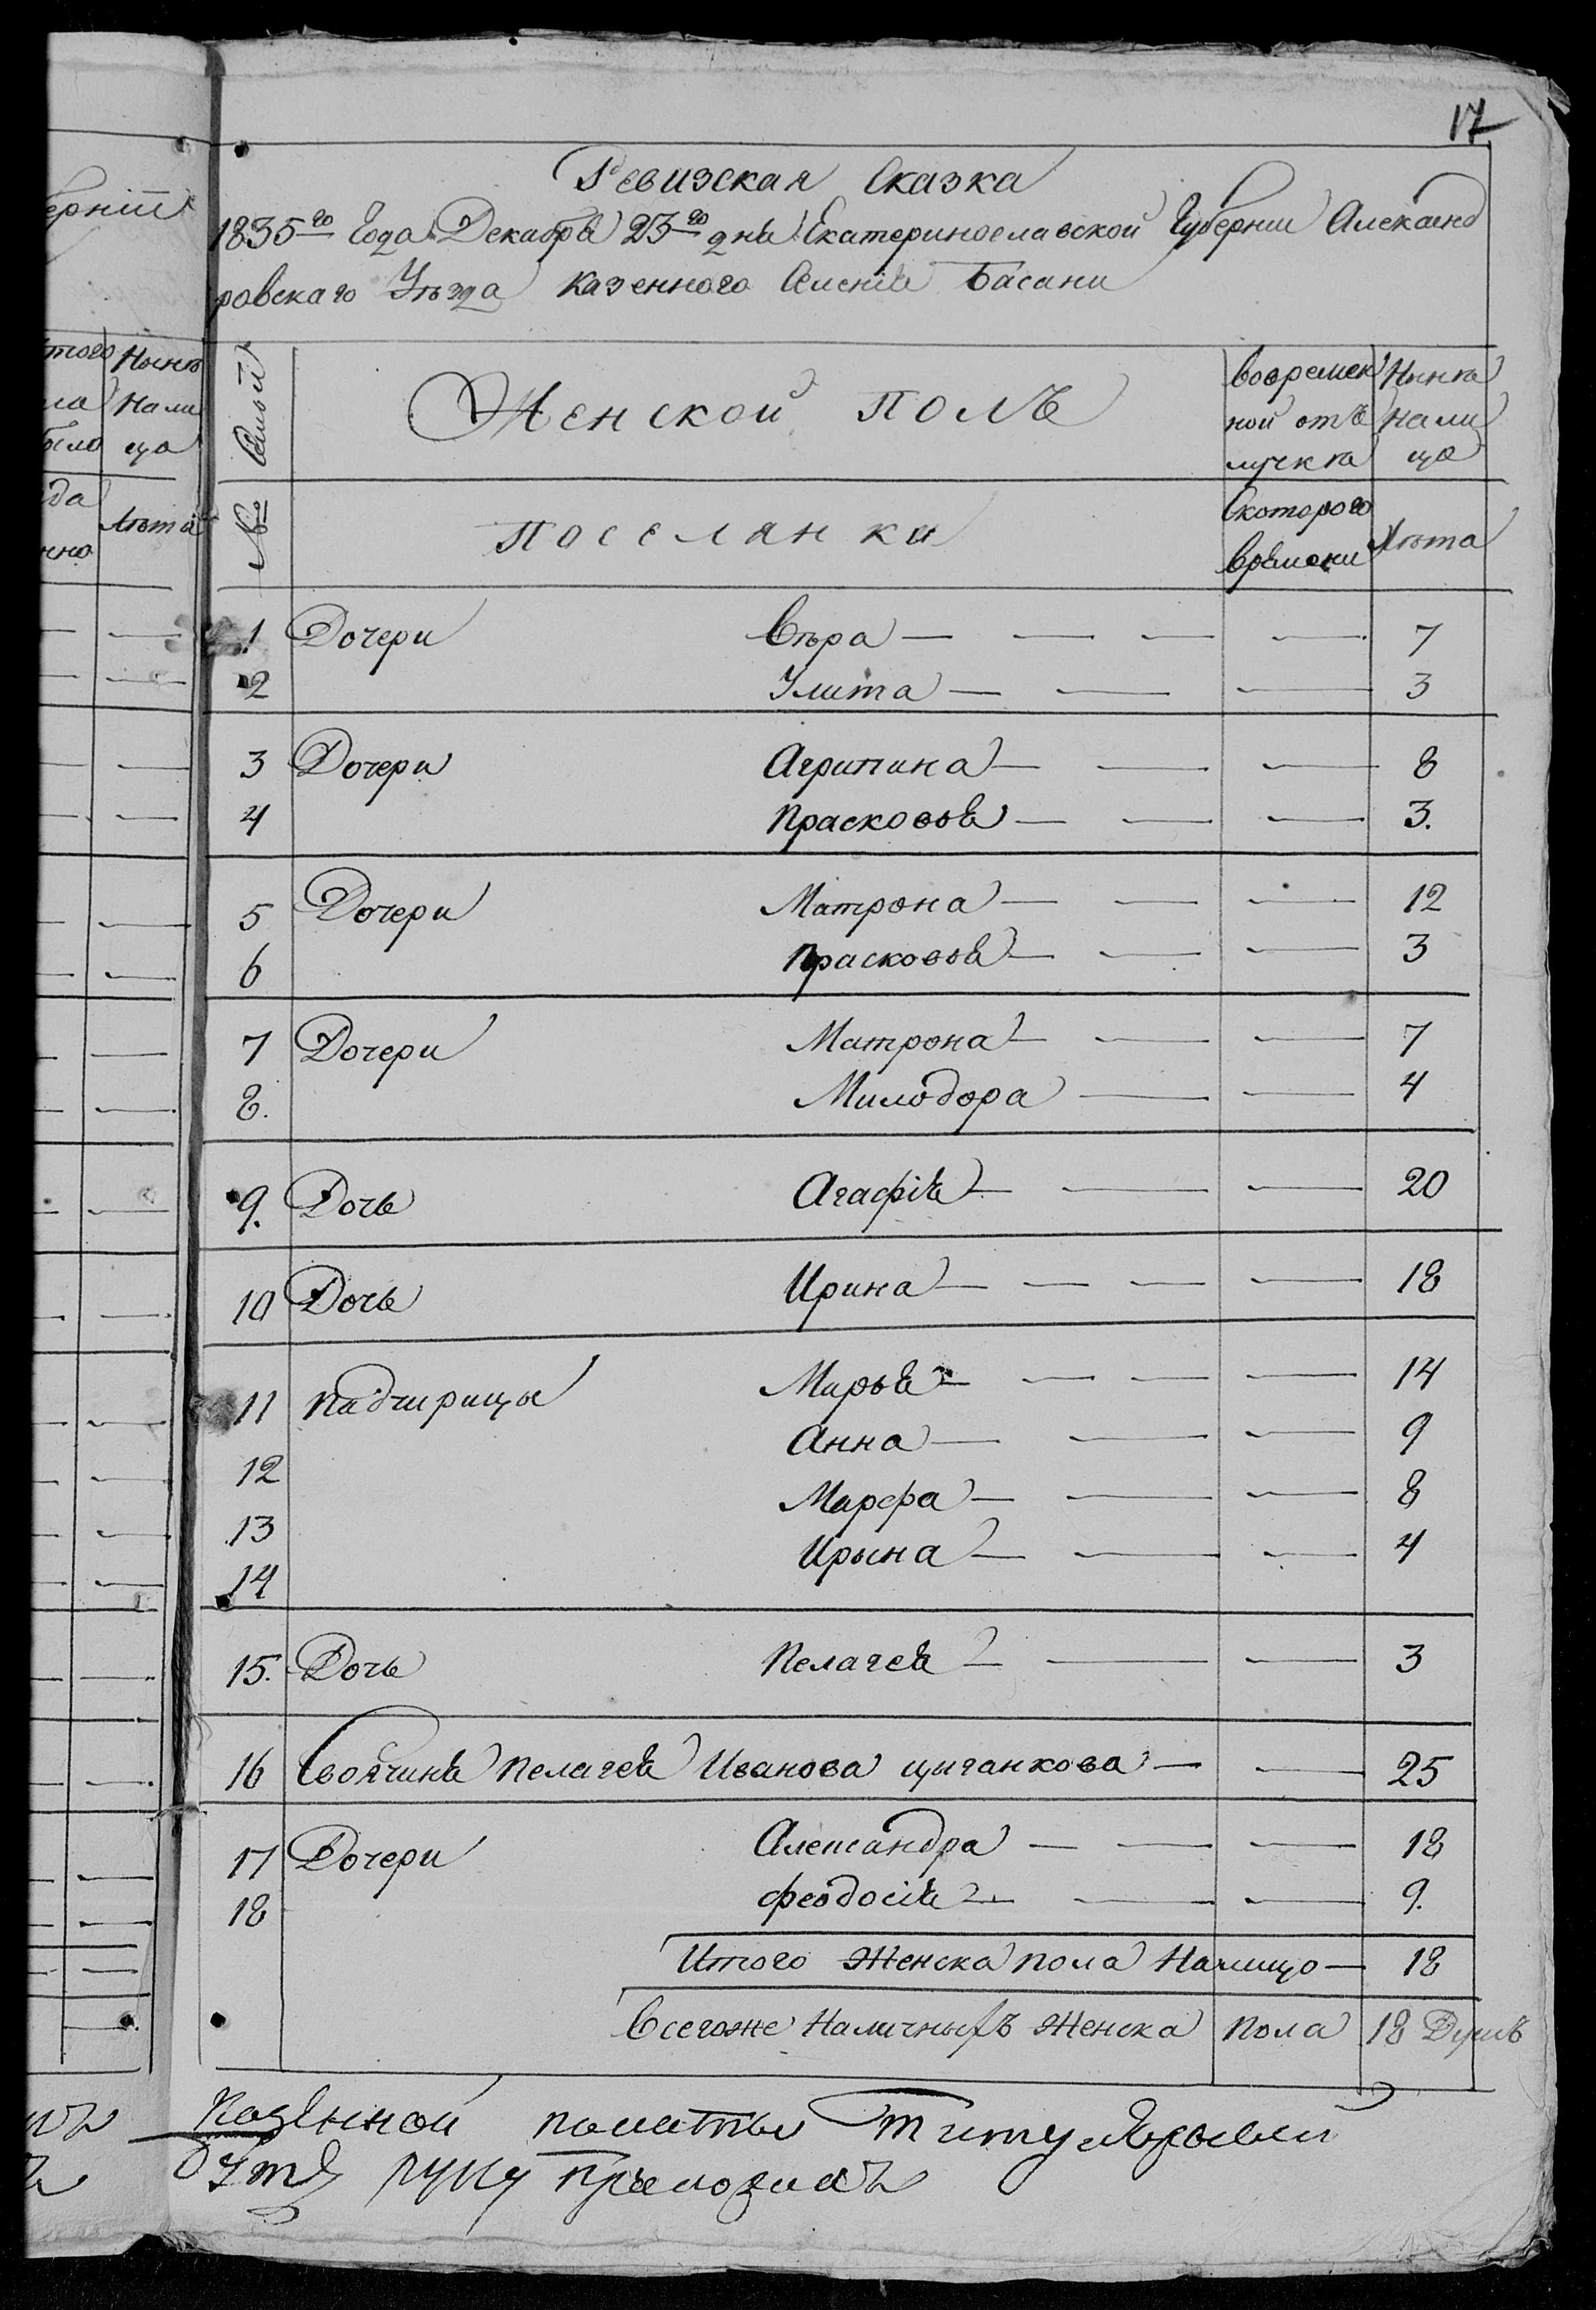 17
Ревизская Сказка
1835го Года Декабря 23го дня Екатеринославской Губернии Александ
ровскаго Уѣзда казенного Имения Басани
№ Семьй
Женской полъ
вовремен
ной отъ
лучкѣ
Нынѣ
нали
цо
поселянки
Скоторого
времени
Лѣта
1 Дочери Вѣра — — — — 7
2 Улита — — — 3
3 Дочери Агрипина — — — 8
4 Прасковья — — — 3.
5 Дочери Матрона — — — 12
6 Прасковья — — — 3
7 Дочери Матрона — — — 7
8. Милодора — — 4
9. Дочь Агафія — — — 20
10 Дочь Ирина — — — — 18
11 Падчирицы Марья — — — — 14
12 Анна — — — 9
13 Марфа — — — 8
14 Ирына — — — 4
15. Дочь Пелагея — — — 3
16 Своячиня Пелагея Иванова цыганкова — — 25
17 Дочери Александра — — — 18
18 Феодосія — — — 9.
Итого Женска пола Налицо — 18
Всегоже Наличныхъ Женска пола 18 Душъ
Казенной
руку приложилъ
ерніи
Нынѣ
нали
цо
Лѣта